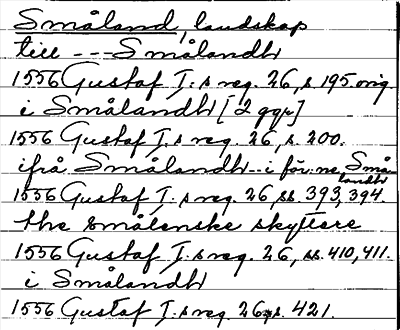 Småland, landskap
till ---Smålandh
1556 Gustaf I:s reg. 26, s. 195. orig.
i Smålandh [2 ggr]
1556 Gustaf I:s reg. 26, s. 200.
ifrå Smålandh--i för:ne Små-
landh
1556 Gustaf I:s reg. 26, ss. 393, 394.
the småienske skyttere
1556 Gustaf I:s reg. 26, ss. 410, 411.
i Smålandh
1556 Gustaf I:s reg. 26, s. 421.